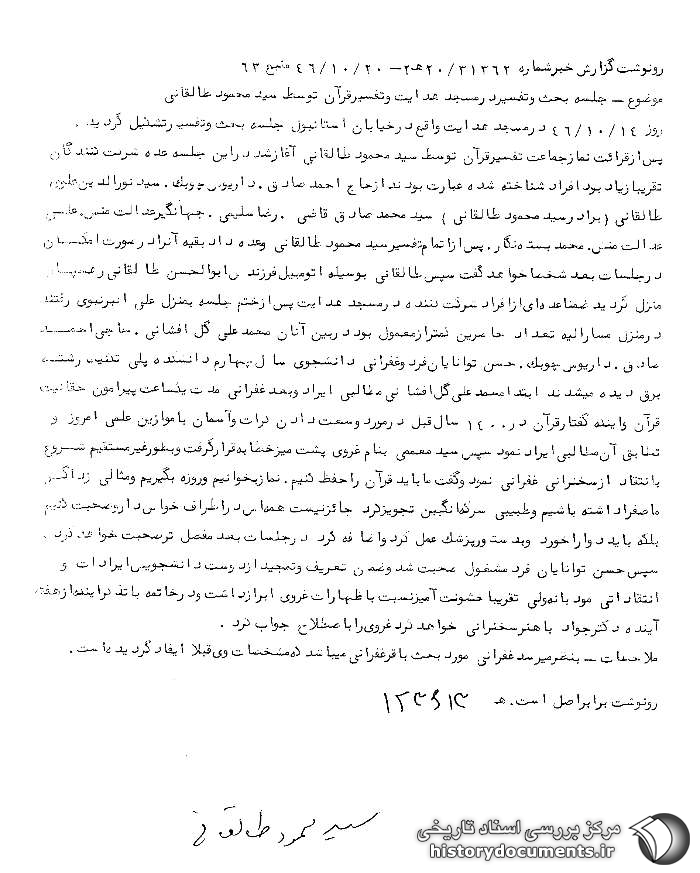 رونوشت گزارش خبر شماره ۳۱۳۶۲/۲۰هـ۲ – ۴۶/۱۰/۲۰ منبع ۶۳
موضوع – جلسه بحث و تفسیر در مسجد هدایت و تفسیر قرآن توسط سید محمود طالقانی
روز ۴۶/۱۰/۱۴ در مسجد هدایت واقع در خیابان استانبول جلسه بحث و تفسیر تشکیل گردید.
پس از قرائت نماز جماعت تفسیر قرآن توسط سید محمود طالقانی آغاز شد در این جلسه عده شرکت کنندگان
تقریبا زیاد بود افراد شناخته شده عبارت بودند از حاج احمد صادق. داریوش چوبک. سید نورالدین علوی
طالقانی (برادر سید محمود طالقانی) سید محمد صادق قاضی. رضا سلیمی. جهانگیر عدالت منش. علی
عدالت منش. محمد بسته نگار. پس از اتمام تفسیر سید محمود طالقانی وعده داد بقیه آنرا در صورت امکان
در جلسات بعد شخصا خواهد گفت سپس طالقانی بوسیله اتومبیل فرزندش ابوالحسن طالقانی رهسپار
منزل گردید ضمنا عده ای از افراد شرکت کننده در مسجد هدایت پس از ختم جلسه بمنزل علی اکبر نبوی رفتند
در منزل مشارالیه تعداد حاضرین کمتر از معمول بود در بین آنان محمد علی گل افشانی. حاجی احمد
صادق. داریوش چوبک. حسن توانایان فرد و غفرانی دانشجوی سال چهارم دانشکده پلی تکنیک رشته
برق دیده میشدند ابتدا محمد علی گل افشانی مطالبی ایراد و بعد غفرانی مدت یکساعت پیرامون حقانیت
قرآن و اینکه گفتار قرآن در ۱۴۰۰ سال قبل در مورد وسعت دادن کرات و آسمان با موازین علمی امروز و
تطابق آن مطالبی ایراد نمود سپس سید معممی بنام غروی پشت میز خطابه قرار گرفت و بطور غیر مستقیم شروع
بانتقاد از سخنرانی غفرانی نمود و گفت ما باید قرآن را حفظ کنیم. نماز بخوانیم و روزه بگیریم و مثالی زد اگر
ما صفرا داشته باشیم و طبیبی سرکه انگبین تجویز کرد جائز نیست همه اش در اطراف خواص دارو صحبت کنیم
بلکه باید دوا را خورد و بدستور پزشک عمل کرد و اضافه کرد در جلسات بعد مفصل تر صحبت خواهد کرد.
سپس حسن توانایان فرد مشغول صحبت شد و ضمن تعریف و تمجید از دوست دانشجویش ایرادات و
انتقاداتی مودبانه ولی تقریبا خشونت آمیز نسبت باظهارات غروی ابراز داشت و در خاتمه با تذکر اینکه از هفته
آینده دکتر جواد باهنر سخنرانی خواهد کرد غروی را باصطلاح جواب کرد.
ملاحظات – بنظر میرسد غفرانی مورد بحث باقر غفرانی میباشد که مشخصات وی قبلا ایفاد گردیده است.
رونوشت برابر اصل است. هـ
سید محمود طالقانی
مرکز بررسی اسناد تاریخی
historydocuments.ir